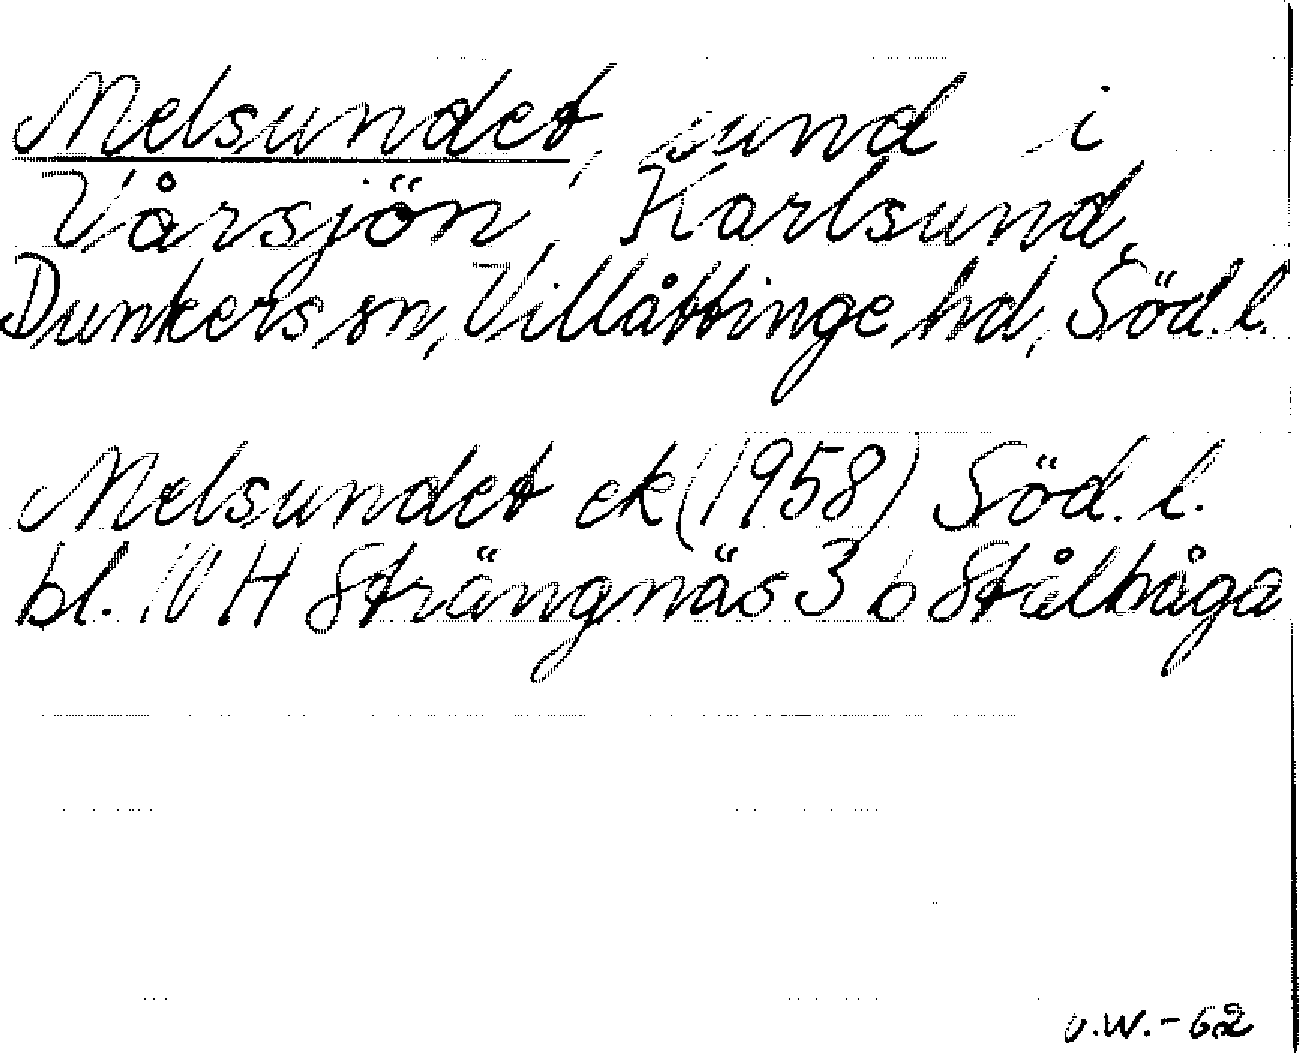 Melsundet, sund i
Vårsjön, Karlsund,
Dunkers sn, Villåttinge hd, Söd. l.
Melsundet ek (1958) Söd. l.
bl. 10 H Strängnäs 3 b Stålbåga
v.W.-62